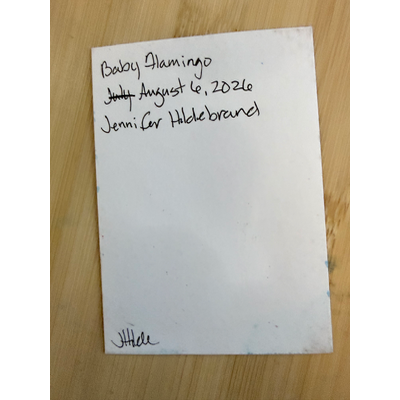 Baby Flamingo
July August 6, 2026
Jennifer Hildebrand
JHilde